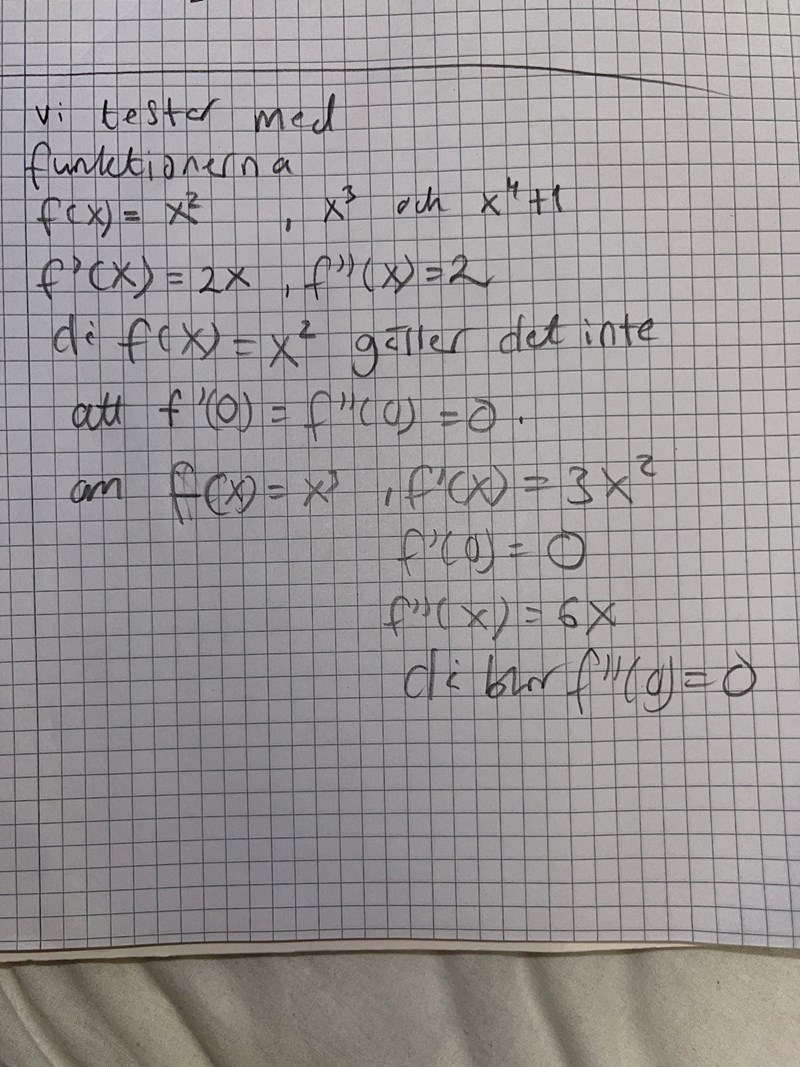 vi tester med
funktionerna
f(x) = x² , x³ och x⁴+1
f'(x) = 2x , f''(x) = 2
di f(x) = x² gäller det inte
att f'(0) = f''(0) = 0.
om f(x) = x³ , f'(x) = 3x²
f'(0) = 0
f''(x) = 6x
di blir f''(0) = 0